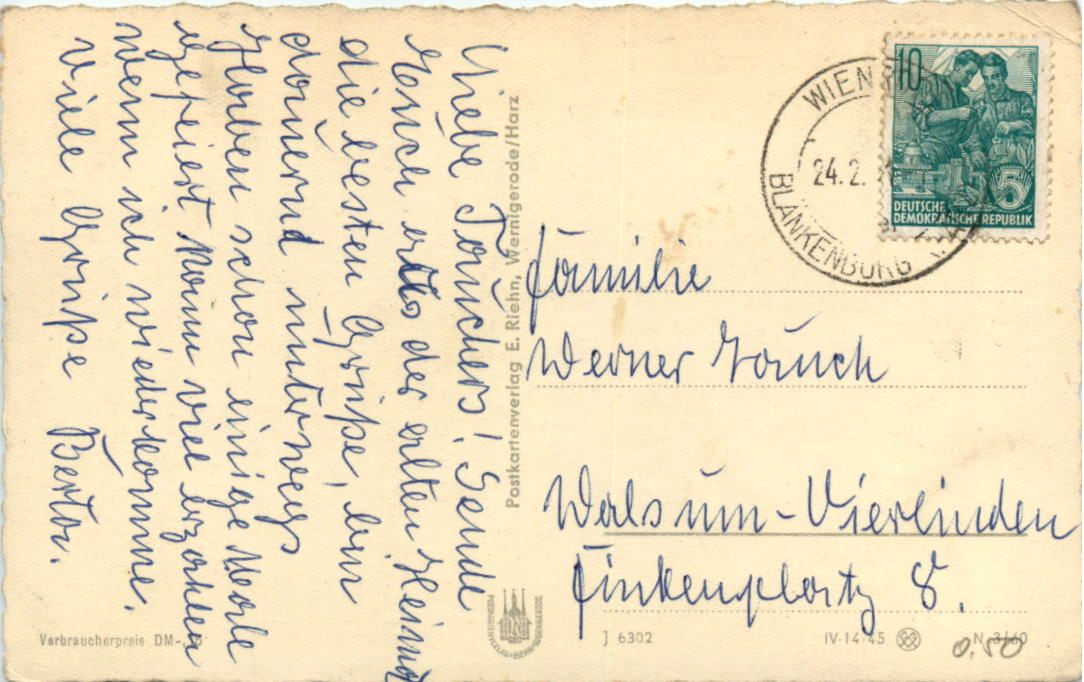 Liebe Tauchers! Sende
Euch aus der alten Heimat
die besten Grüße, bin
dauernd unterwegs
Haben schon einige Male
gefeiert kann viel erzählen
wenn ich wiederkomme.
Viele Grüße Berta.
Postkartenverlag E. Riehn, Wernigerode/Harz
10
5
DEUTSCHE
DEMOKRATISCHE REPUBLIK
WIEN
24. 2.
BLANKENBURG
Familie
Werner
Walsum-Vierlinden
Finkenplatz 8.
Verbraucherpreis DM-
J 6302
IV-14-45
N 3/60
0.50